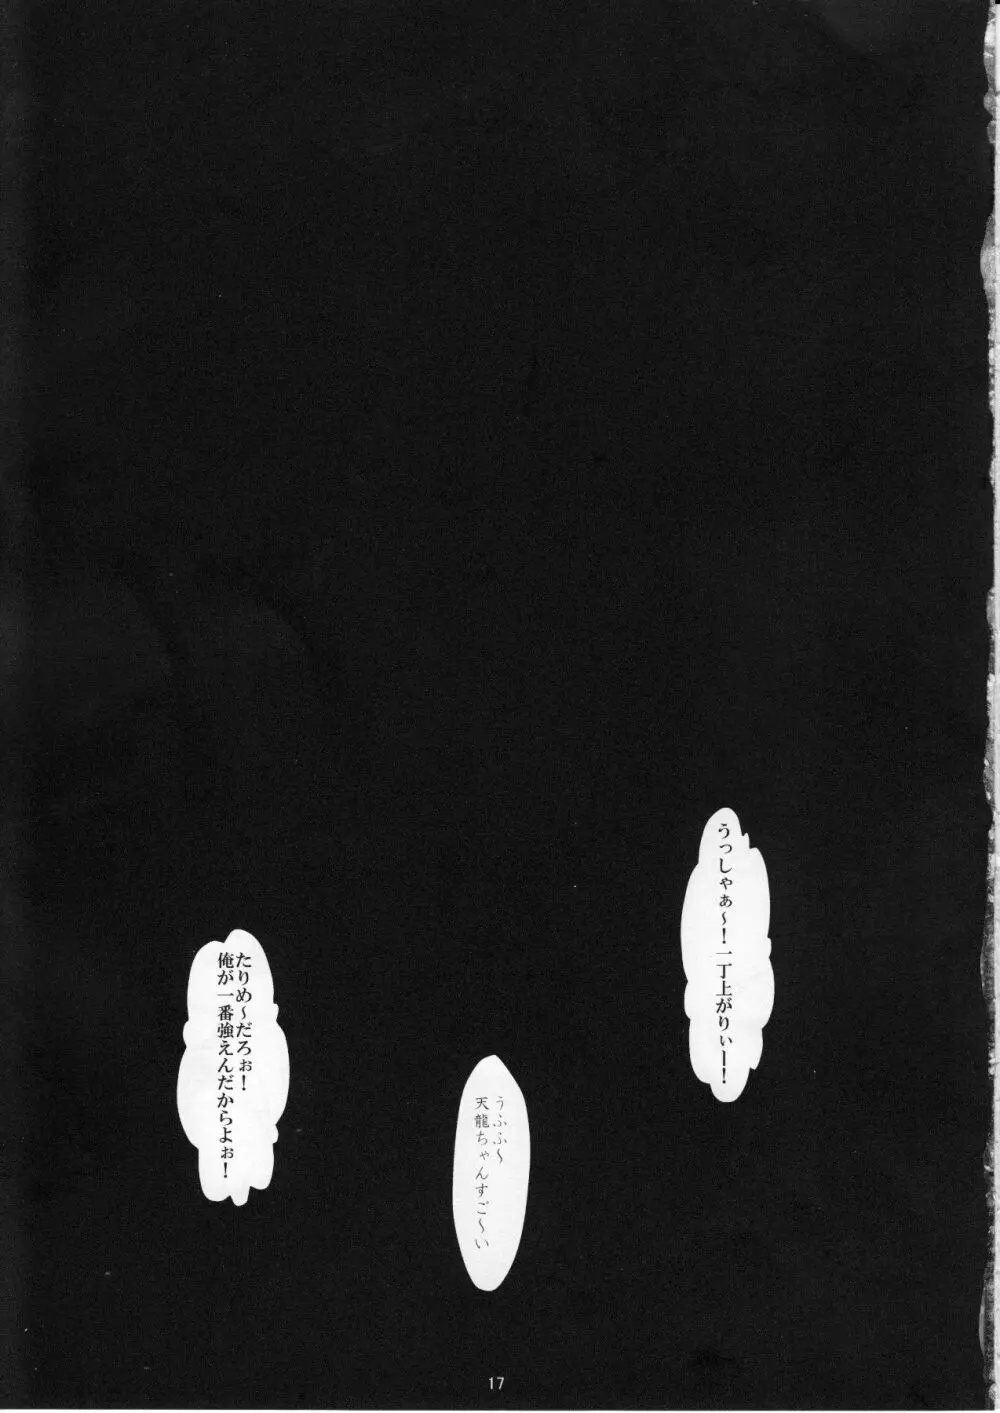 うっしゃぁ～！一丁上がりぃー！
うふふ～
天龍ちゃんすご～い
たりめ～だろぉ！
俺が一番強えんだからよぉ！
17